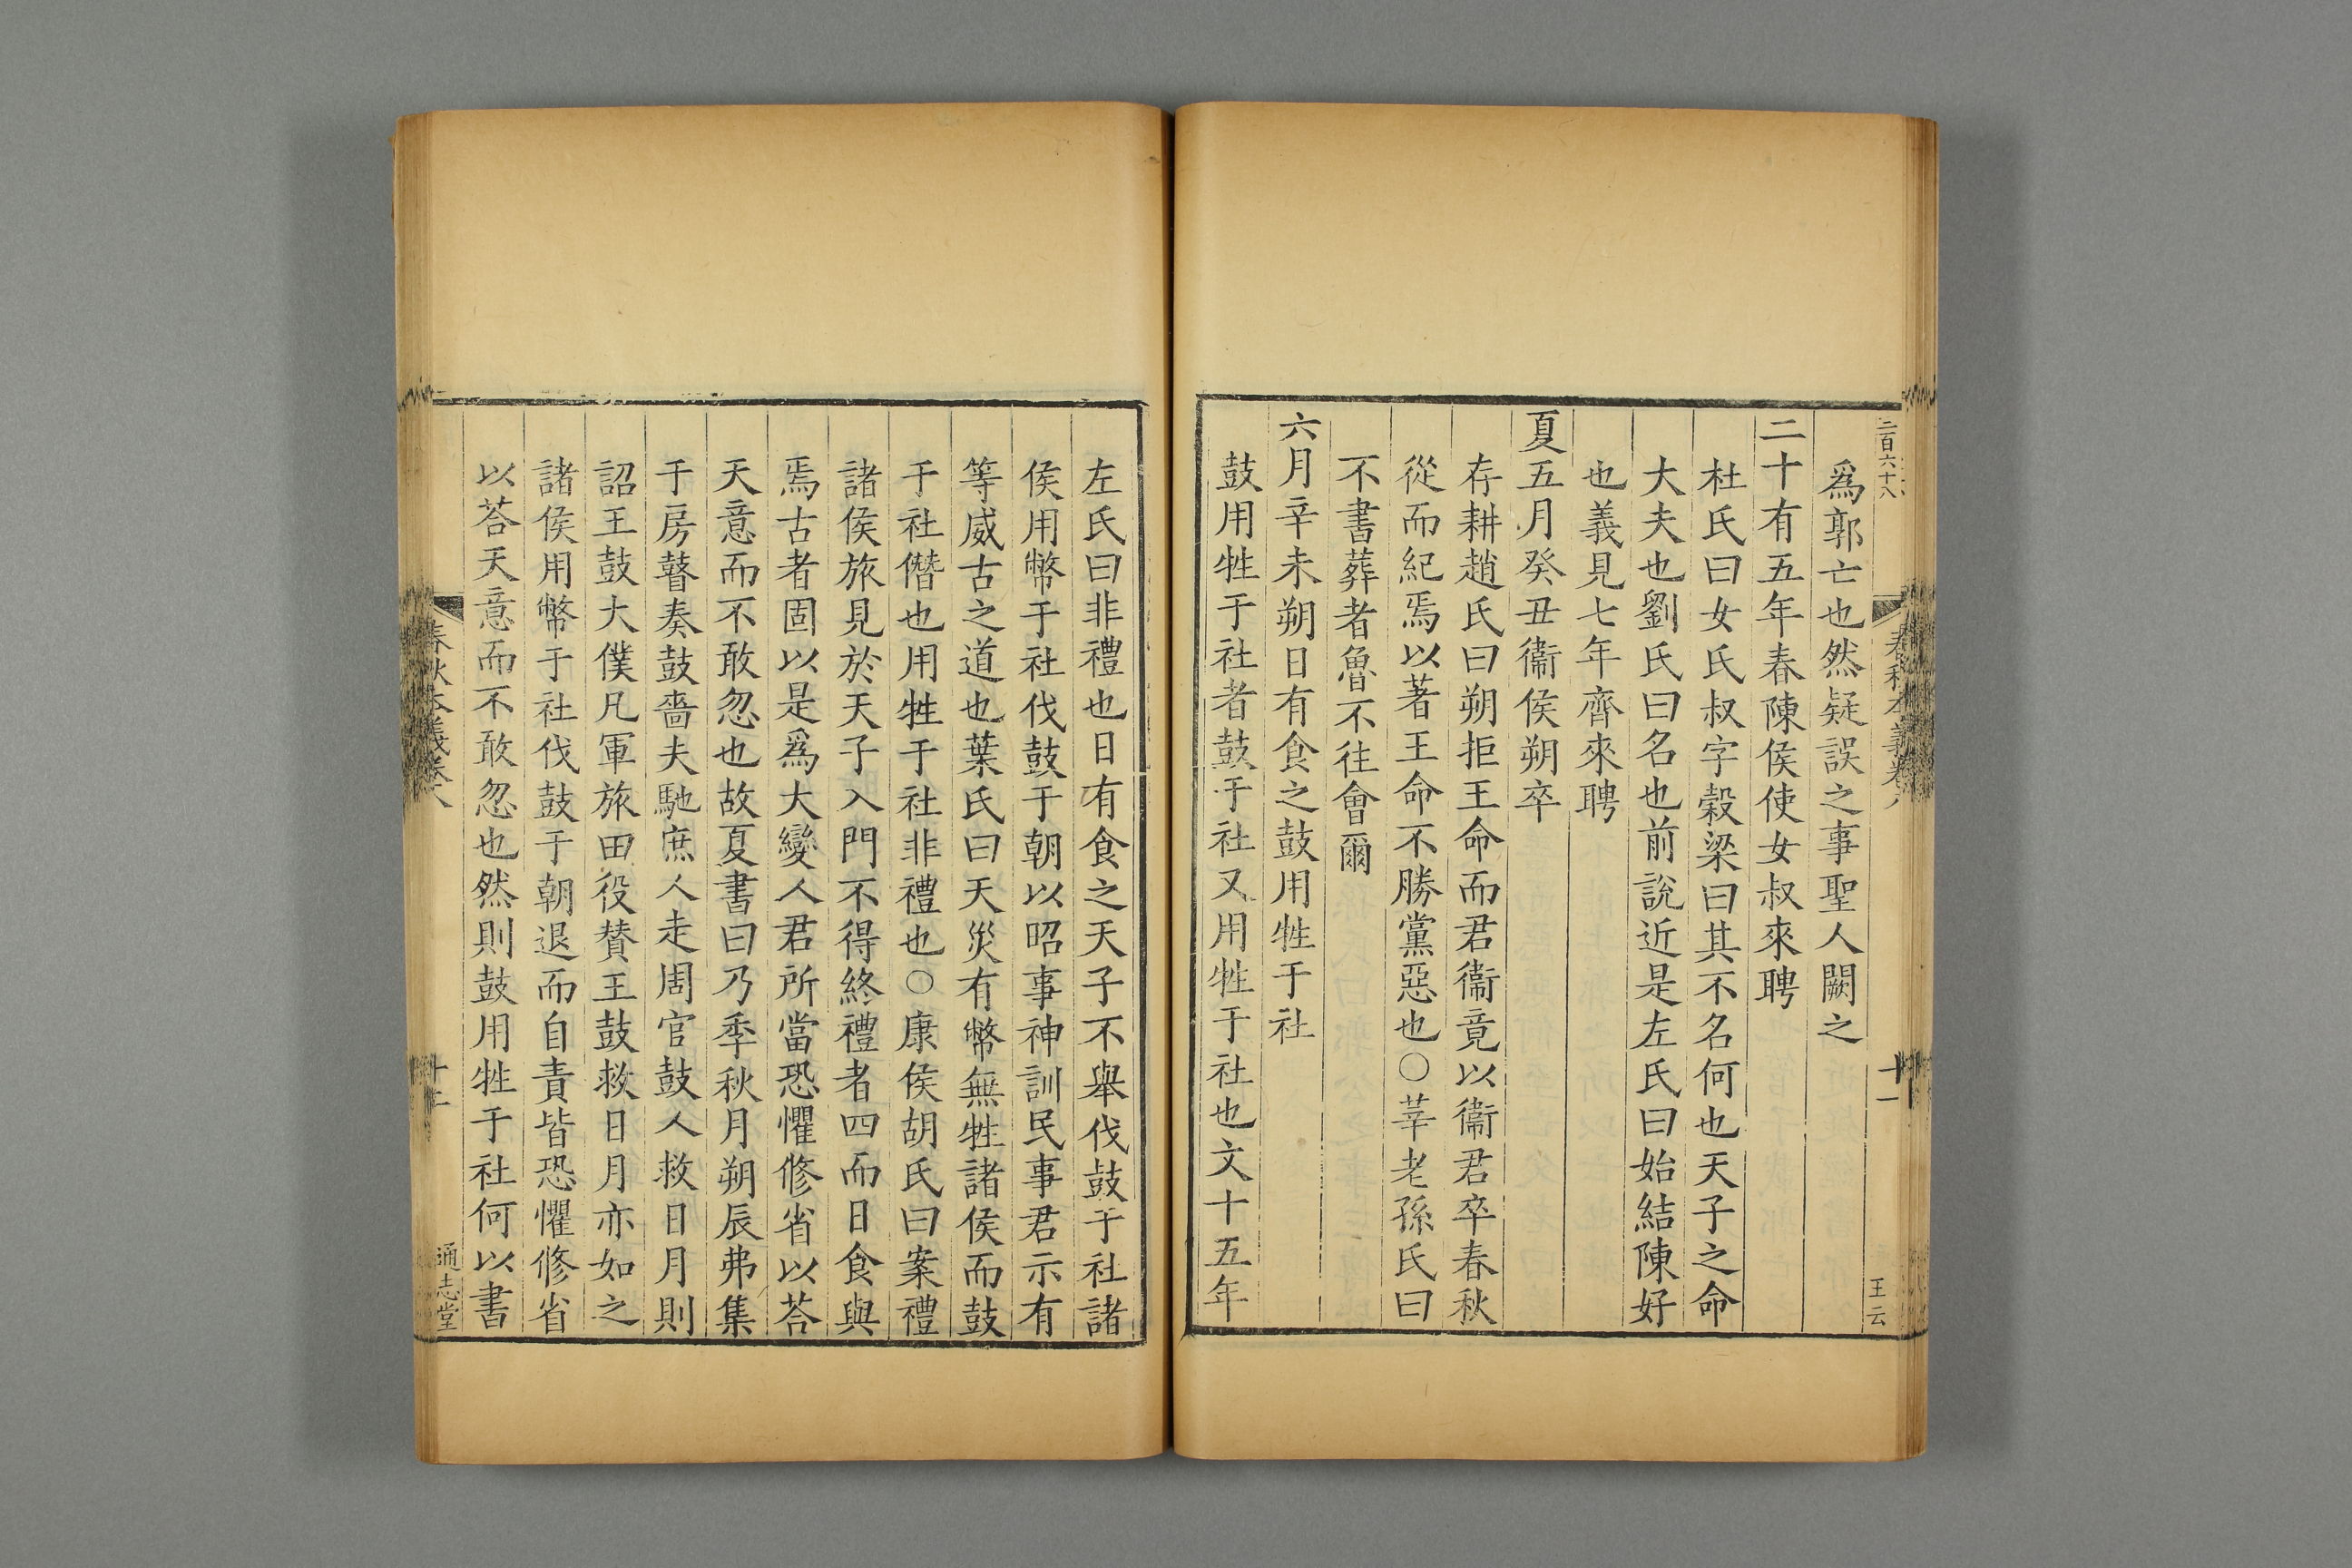 二百六十八
春秋本義卷八
十一
王云
爲郭亡也然疑誤之事聖人闕之
二十有五年春陳侯使女叔來聘
杜氏曰女氏叔字穀梁曰其不名何也天子之命
大夫也劉氏曰名也前說近是左氏曰始結陳好
也義見七年齊來聘
夏五月癸丑衞侯朔卒
存耕趙氏曰朔拒王命而君衞竟以衞君卒春秋
從而紀焉以著王命不勝黨惡也○莘老孫氏曰
不書葬者魯不往會爾
六月辛未朔日有食之鼓用牲于社
鼓用牲于社者鼓于社又用牲于社也文十五年
左氏曰非禮也日有食之天子不舉伐鼓于社諸
侯用幣于社伐鼓于朝以昭事神訓民事君示有
等威古之道也葉氏曰天災有幣無牲諸侯而鼓
于社僭也用牲于社非禮也○康侯胡氏曰案禮
諸侯旅見於天子入門不得終禮者四而日食與
焉古者固以是爲大變人君所當恐懼修省以荅
天意而不敢忽也故夏書曰乃季秋月朔辰弗集
于房瞽奏鼓嗇夫馳庶人走周官鼓人救日月則
詔王鼓大僕凡軍旅田役贊王鼓救日月亦如之
諸侯用幣于社伐鼓于朝退而自責皆恐懼修省
以荅天意而不敢忽也然則鼓用牲于社何以書
春秋本義卷八
十二
通志堂